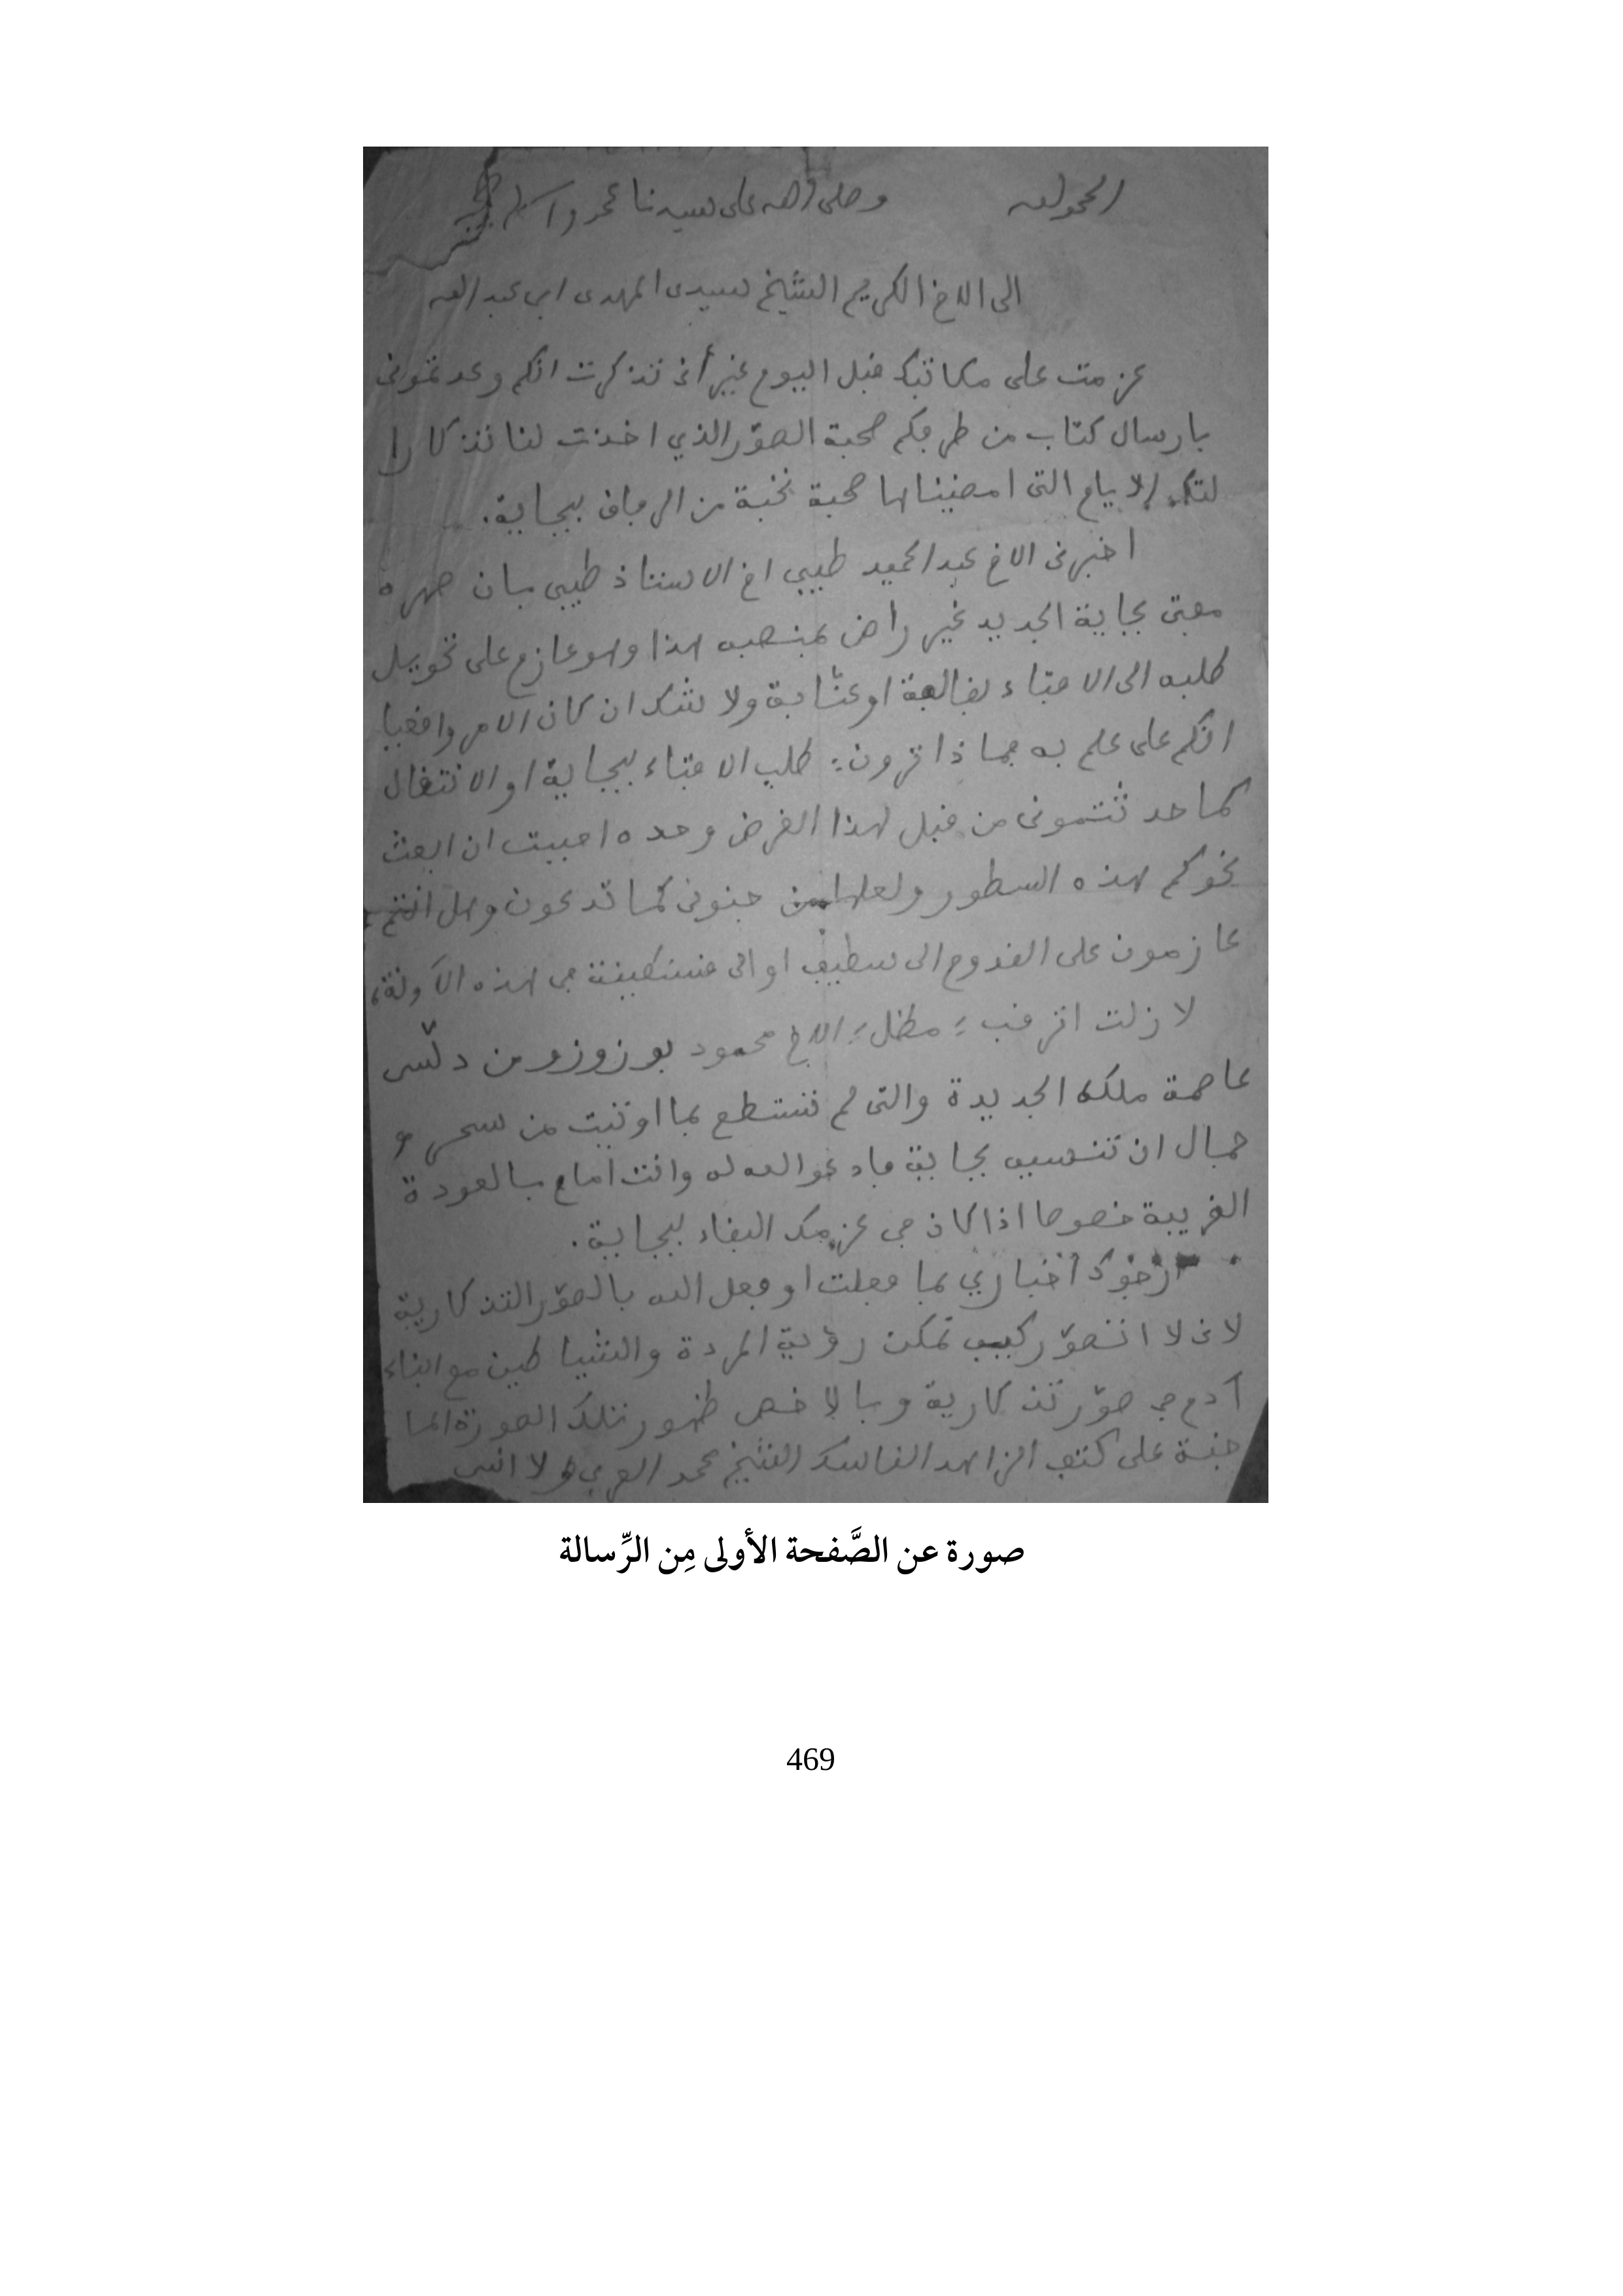 الحمد لله وصلى الله على سيدنا محمد وآله
الى الاخ الكريم الشيخ سيدى المهدى ابن عبد الله
عزمت على مكاتبتك قبل اليوم غير أنى تذكرت انكم وعدتمونى
بارسال كتاب من طرفكم صحبة الصوّر الذي اخذت لنا تذكارا
لتلك الايام التى امضيناها صحبة نخبة من الرفاق ببجاية.
اخبرنى الاخ عبد الحميد طيبي اخ الاستاذ طيبى بان صهره
مفتى بجاية الجديد غير راض بمنصبه هذا وهو عازم على تحويل
طلبه الى الافتاء بقالمة او عنّابة ولا شك ان كان الامر واقعيا
انكم على علم به فماذا ترون: طلب الافتاء ببجاية او الانتقال
كما حدثتمونى من قبل لهذا الغرض وحده احببت ان ابعث
نحوكم هذه السطور ولعلها من جنونى كما تدعون وهل انتم
عازمون على القدوم الى سطيف او الى قسنطينة فى هذه الآونة،
لا زلت اترقب مطل الاخ محمود بوزوزو من دلّس
عاصمة ملكه الجديدة والتى لم تستطع بما اوتيت من سحر و
جمال ان تنسيه بجاية فادعو الله له وانت امام بالعودة
القريبة خصوصا اذا كان فى عزمك البقاء ببجاية.
ارجوك أخباري بما فعلت او فعل الله بالصوّر التذكارية
لانى لا اتصوّر كيف تمكن رؤية المردة والشياطين مع ابناء
آدم فى صوّر تذكارية وبالاخص ظهور تلك الصورة الما
جنة على كتف الزاهد الناسك الشيخ محمد العربي ولا انس
صورة عن الصَّفحة الأولى مِن الرِّسالة
469